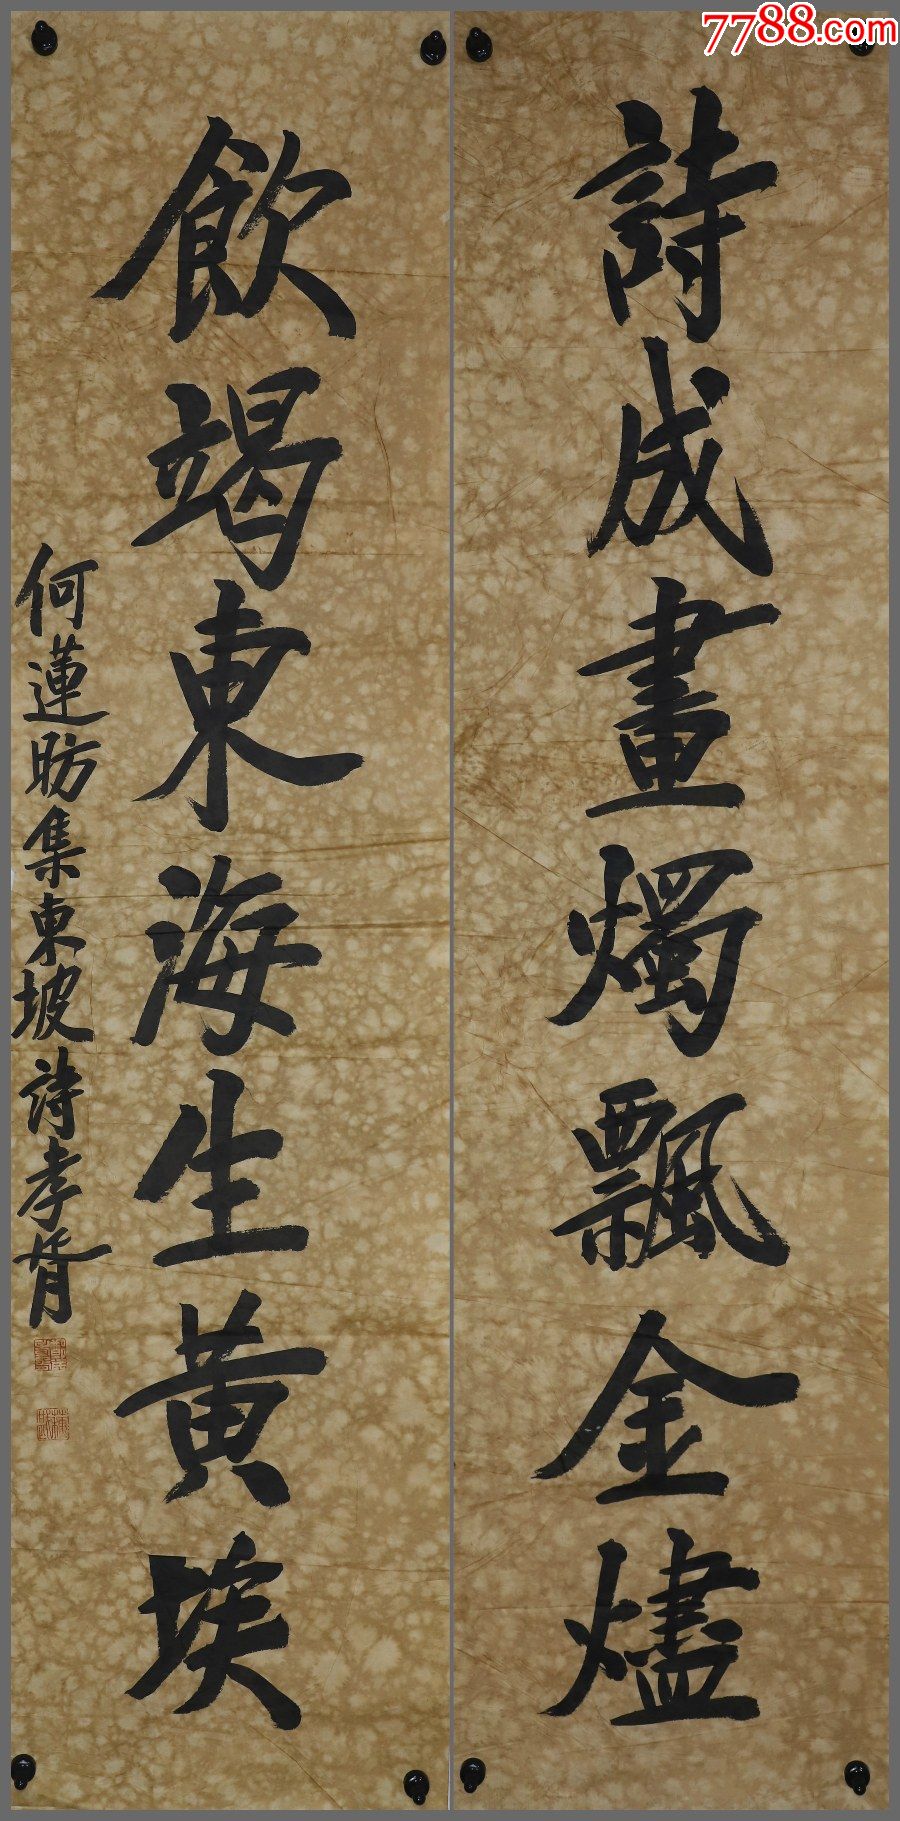 7788.com
詩成畫燭飄金燼
飲竭東海生黃埃
何蓮昉集東坡詩孝胥